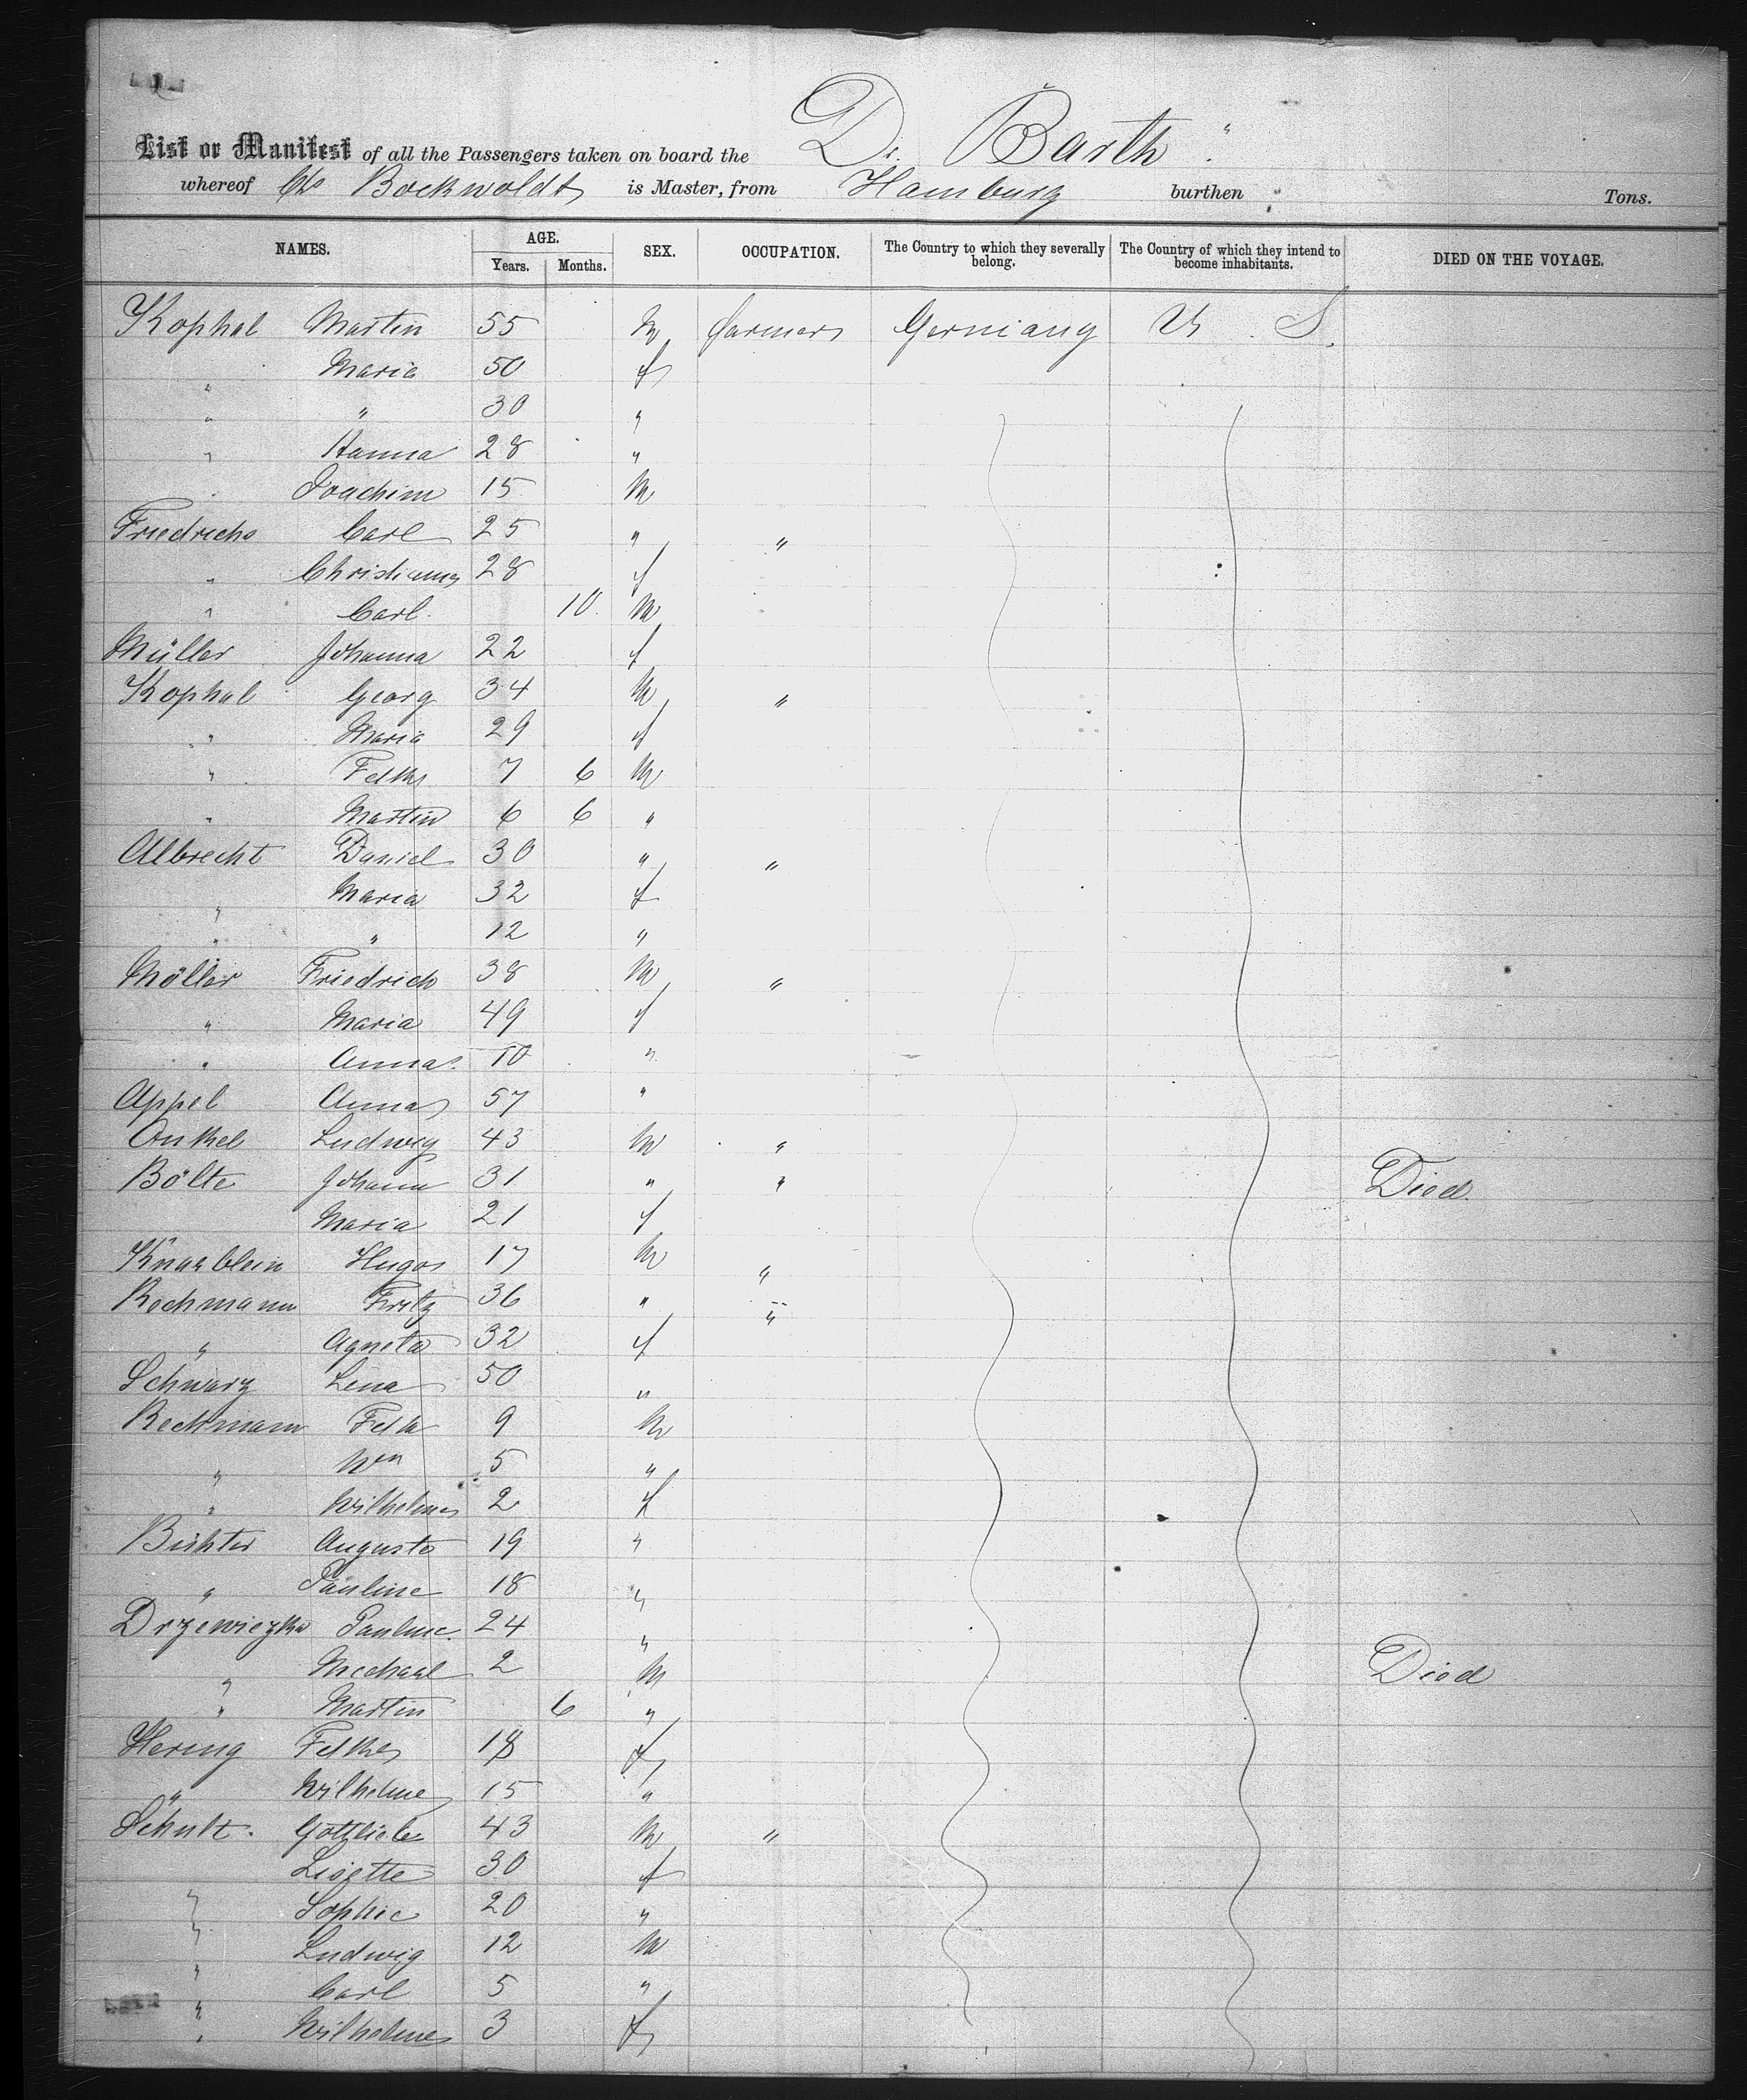 List or Manifest of all the Passengers taken on board the Dr. Barth"
whereof Bockwoldt is Master, from Hamburg burthen Tons.
NAMES. AGE. SEX. OCCUPATION. The Country to which they severally belong. The Country of which they intend to become inhabitants. DIED ON THE VOYAGE.
Years. Months.
Kophal Martin 55 m farmer Germany U. S.
" Maria 50 f
" " 30 "
" Hanna 28 "
" Joachim 15 m
Friedrichs Carl 25 " "
" Christiana 28 f
" Carl 10 m
Müller Johanna 22 f
Kophal Georg 34 m "
" Maria 29 f
" 7 6 m
" Martin 6 6 "
Albrecht Daniel 30 " "
" Maria 32 f
" " 12 "
Möller Friedrich 38 m "
" Maria 49 f
" Anna 10 "
Appel Anna 57 "
Onkel Ludwig 43 m "
Bölte Johann 31 " " Died
Maria 21 f
Knaablein Hugo 17 m "
Rechmann Fritz 36 " "
" Agneta 32 f
Schwarz Lena 50 "
Rechmann 9 m
" Wm 5 "
" Wilhelmine 2 f
Auguste 19 "
" Pauline 18 "
Drzewiezka Pauline 24 "
" Michael 2 m Died
" Martin 6 "
Hering 18 f
" Wilhelmine 15 "
Schult. Gottlieb 43 m "
Lisette 30 f
" Sophie 20 "
" Ludwig 12 m
" Carl 5 "
" Wilhelmine 3 f